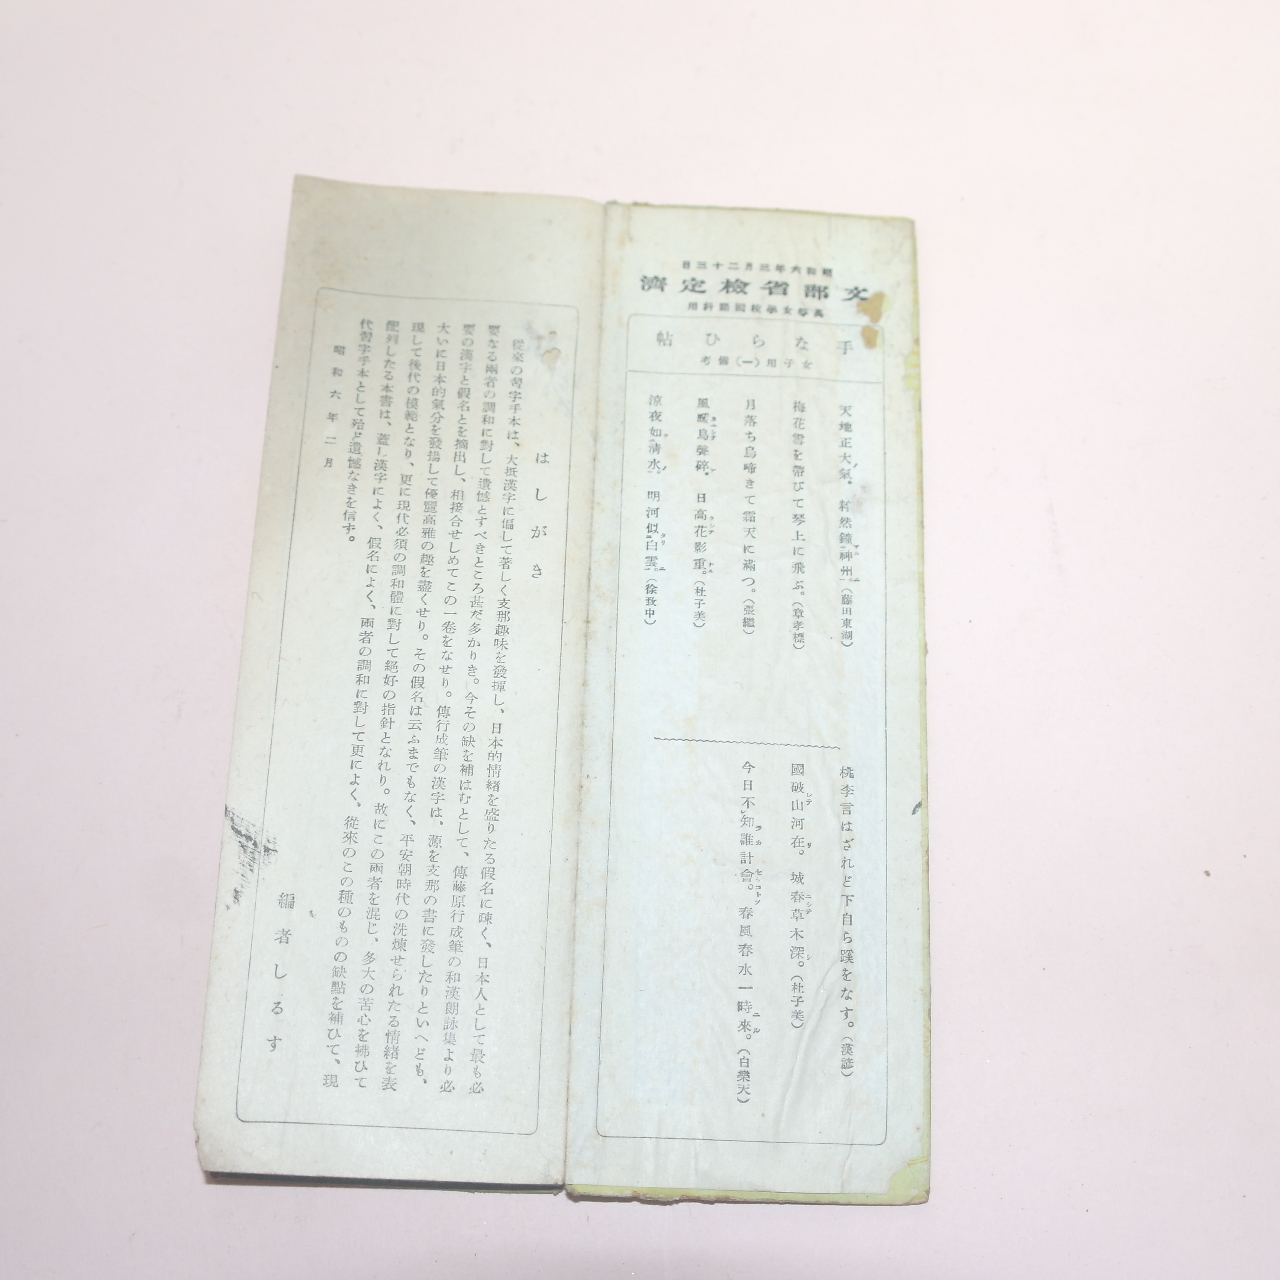 昭和六年三月二十三日
文部省檢定濟
高等女學校國語科用
手ならひ帖
女子用(一)備考
天地正大氣。粹然鐘神州。(藤田東湖)
梅花雪を帶びて琴上に飛ぶ。(章孝標)
月落ち烏啼きて霜天に滿つ。(張繼)
風暖鳥聲碎。日高花影重。(杜子美)
涼夜如清水。明河似白雲。(徐致中)
桃李言はざれど下自ら蹊をなす。(漢諺)
國破山河在。城春草木深。(杜子美)
今日不知誰計會。春風春水一時來。(白樂天)
はしがき
從來の習字手本は、大抵漢字に偏して著しく支那趣味を發揮し、日本的情緒を盛りたる假名に疎く、日本人として最も必
要なる兩者の調和に對して遺憾とすべきところ甚だ多かりき。今その缺を補はむとして、傳藤原行成筆の和漢朗詠集より必
要の漢字と假名とを摘出し、相接合せしめてこの一卷をなせり。傳行成筆の漢字は、源を支那の書に發したりといへども、
大いに日本的氣分を發揚して優麗高雅の趣を盡くせり。その假名は云ふまでもなく、平安朝時代の洗煉せられたる情緒を表
現して後代の模範となり、更に現代必須の調和體に對して絕好の指針となれり。故にこの兩者を混じ、多大の苦心を拂ひて
配列したる本書は、蓋し漢字によく、假名によく、兩者の調和に對して更によく、從來のこの種のものの缺點を補ひて、現
代習字手本として殆ど遺憾なきを信ず。
昭和六年二月
編者しるす